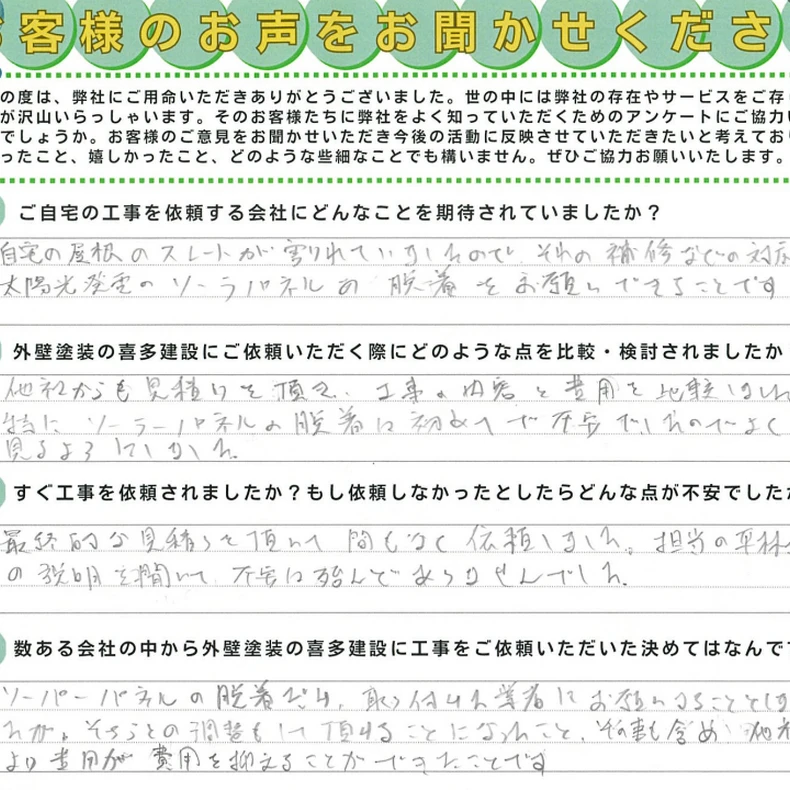 お客様のお声をお聞かせくださ
の度は、弊社にご用命いただきありがとうございました。世の中には弊社の存在やサービスをご存
が沢山いらっしゃいます。そのお客様たちに弊社をよく知っていただくためのアンケートにご協力
でしょうか。お客様のご意見をお聞かせいただき今後の活動に反映させていただきたいと考えてお
ったこと、嬉しかったこと、どのような些細なことでも構いません。ぜひご協力お願いいたします。
ご自宅の工事を依頼する会社にどんなことを期待されていましたか？
自宅の屋根のスレートが割れていましたので、それの補修などの対応
太陽光発電のソーラパネルの脱着をお願いできることです
外壁塗装の喜多建設にご依頼いただく際にどのような点を比較・検討されましたか
他社からも見積りを頂き、工事の内容と費用を比較しまし
特にソーラーパネルの脱着は初めてで不安でしたのでよく
見るようにしました。
すぐ工事を依頼されましたか？もし依頼しなかったとしたらどんな点が不安でした
最終的な見積りを頂いて間もなく依頼しました。担当の平林
の説明を聞いて、不安は殆んどありませんでした。
数ある会社の中から外壁塗装の喜多建設に工事をご依頼いただいた決めてはなんで
ソーパーパネルの脱着だけ、取り付けた業者にお願いすることとしま
たが、そちらとの調整もして頂けることになったこと、その事も含め 他社
より費用が費用を抑えることができたことです